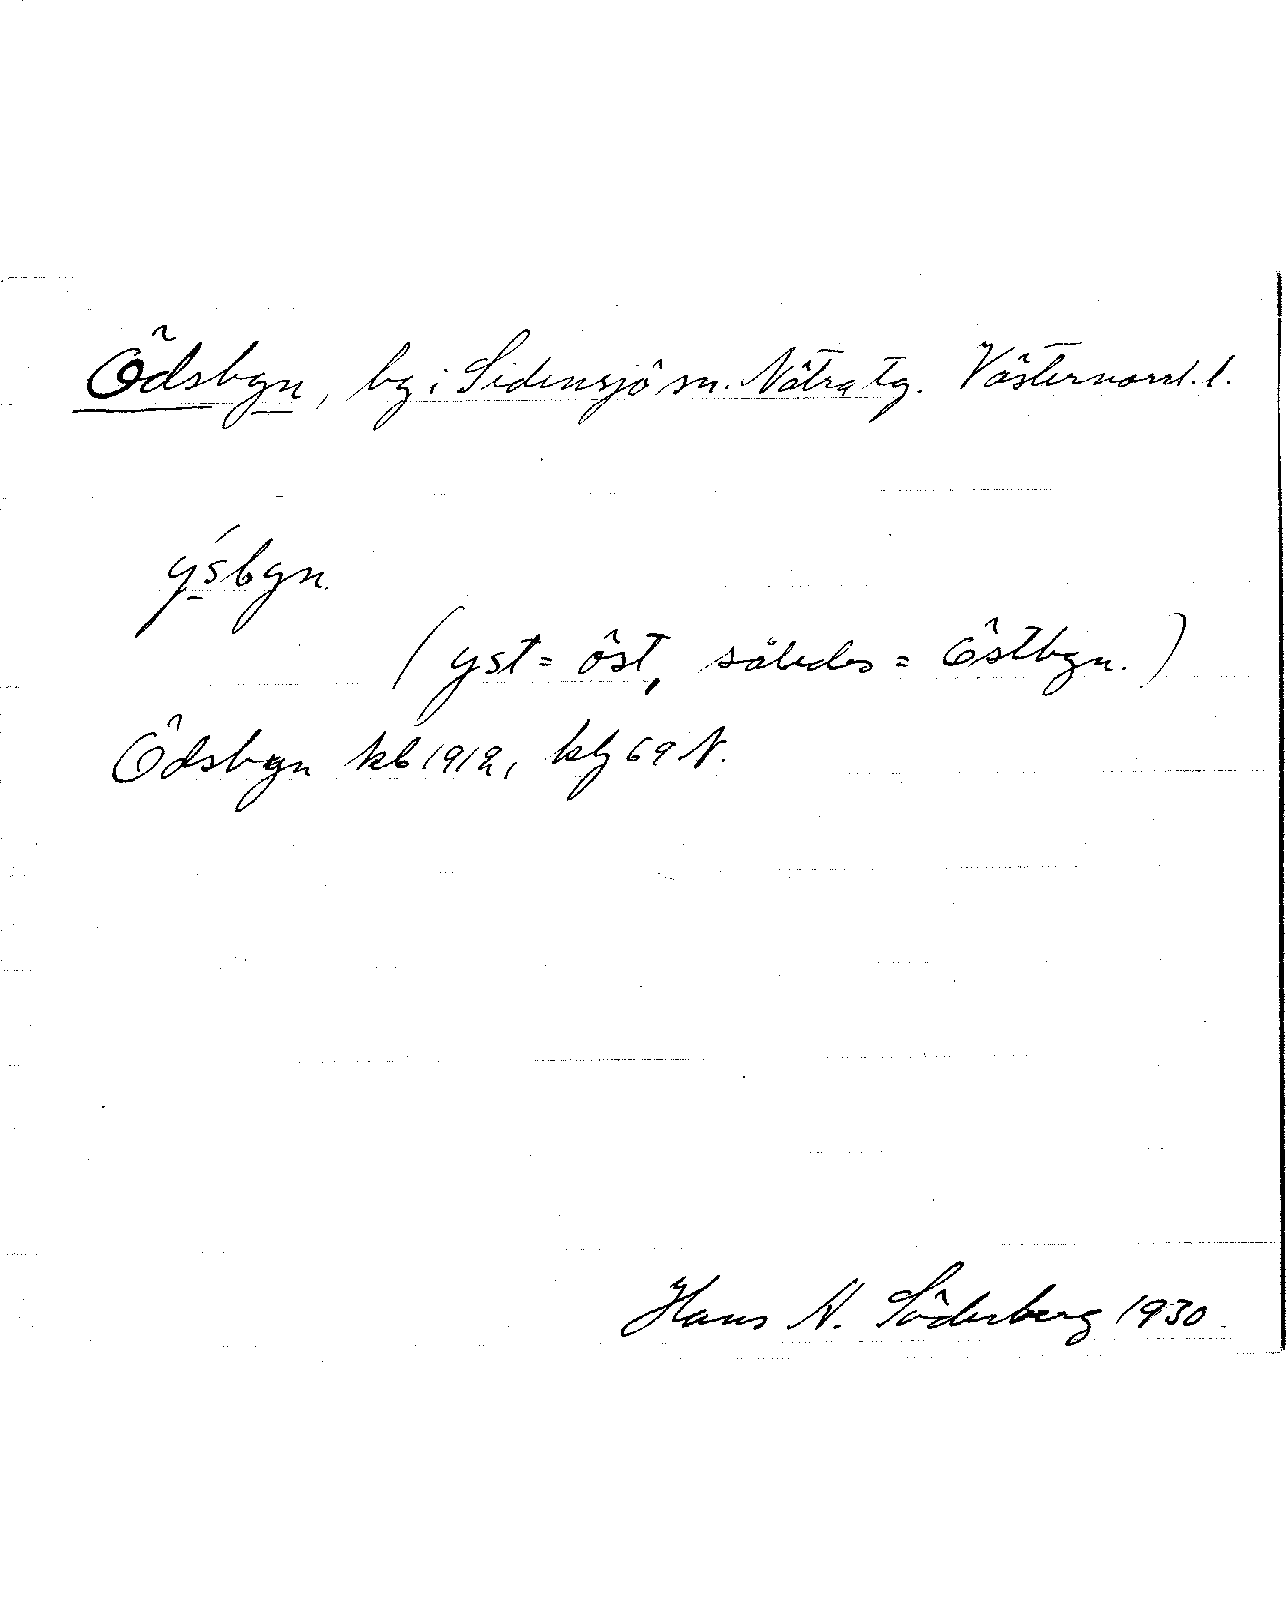 Ödsbyn, by i Sidensjö sn. Nätra tg. Västernorrl. l.
ýsbyn.
(yst = öst, således = Östbyn.)
Ödsbyn kb 1912, kbj 69 N.
Hans N. Söderberg 1930.